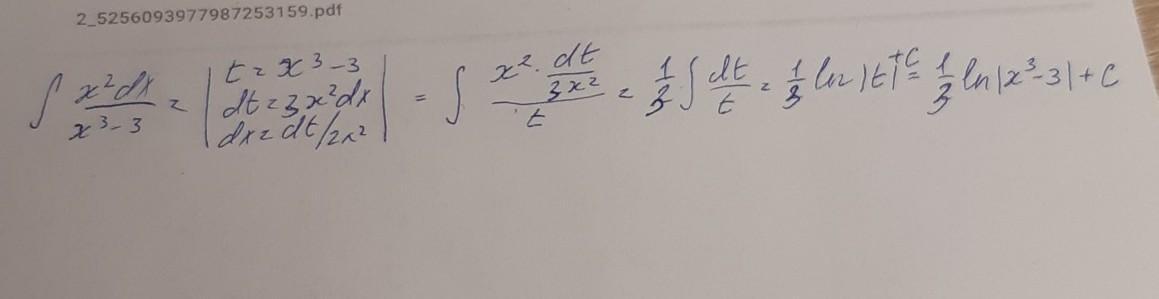 2_5256093977987253159.pdf
∫ x²dx / x³-3 = | t = x³-3 dt = 3x²dx dx = dt/2x² | = ∫ x² · dt/3x² / t = 1/3 ∫ dt/t = 1/3 ln |t| + C = 1/3 ln|x³-3| + C